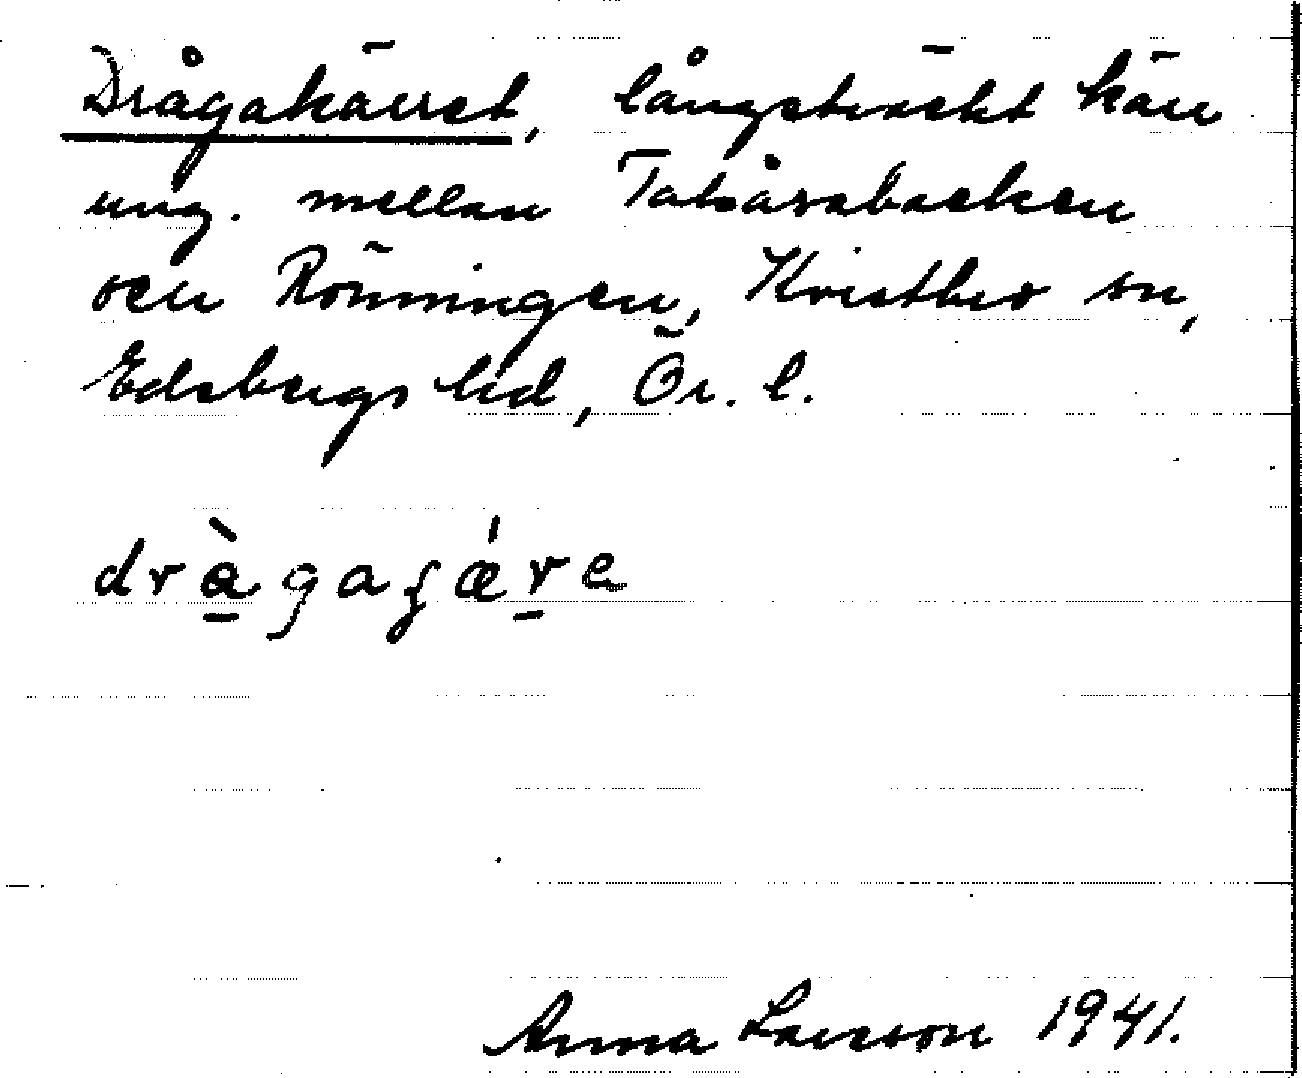 Drågakärret, långsträckt kärr
ung. mellan Tabårsbacken
och Rönningen, Kvistbro sn,
Edsbergs hd, Ör. l.
dràgagǽre
Anna Larsson 1941.